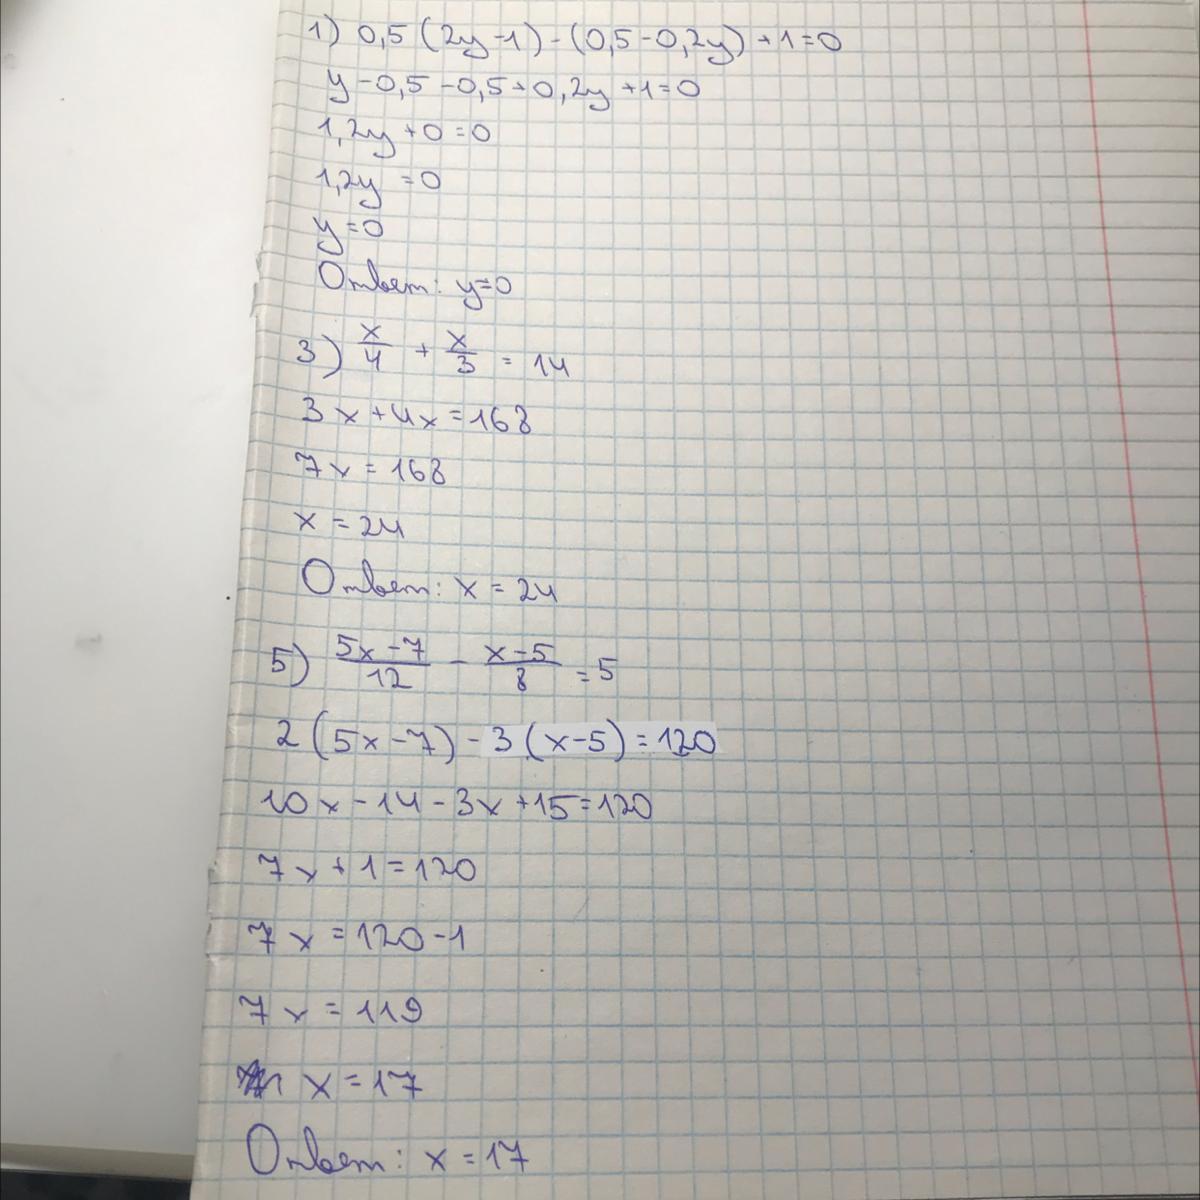 1) 0,5 (2y-1) - (0,5-0,2y) +1=0
y-0,5-0,5+0,2y+1=0
1,2y+0=0
1,2y=0
y=0
Ответ: y=0
3) x/4 + x/3 = 14
3x+4x=168
7x=168
x=24
Ответ: x=24
5) 5x-7/12 - x-5/8 =5
2(5x-7)-3(x-5)=120
10x-14-3x+15=120
7x+1=120
7x=120-1
7x=119
x=17
Ответ: x=17